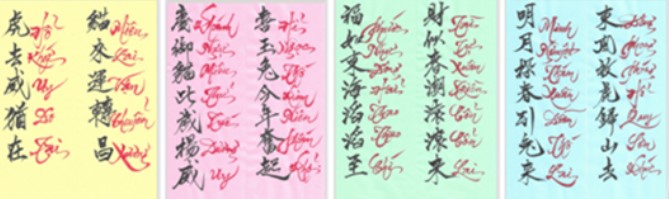 虎去威猶在
Hổ Khứ Uy Do Tại
貓來運轉昌
Miêu Lai Vận Chuyển Xương
慶御貓此歲揚威
Khánh Ngự Miêu Thử Tuế Dương Uy
喜玉兔今年奮起
Hỉ Ngọc Thố Kim Niên Phấn Khởi
福如東海滔滔至
Phúc Như Đông Hải Thao Thao Chí
財似春潮滾滾來
Tài Tự Xuân Triều Cổn Cổn Lai
明月探春引兔來
Minh Nguyệt Thám Xuân Dẫn Thố Lai
東風放虎歸山去
Đông Phong Phóng Hổ Quy Sơn Khứ